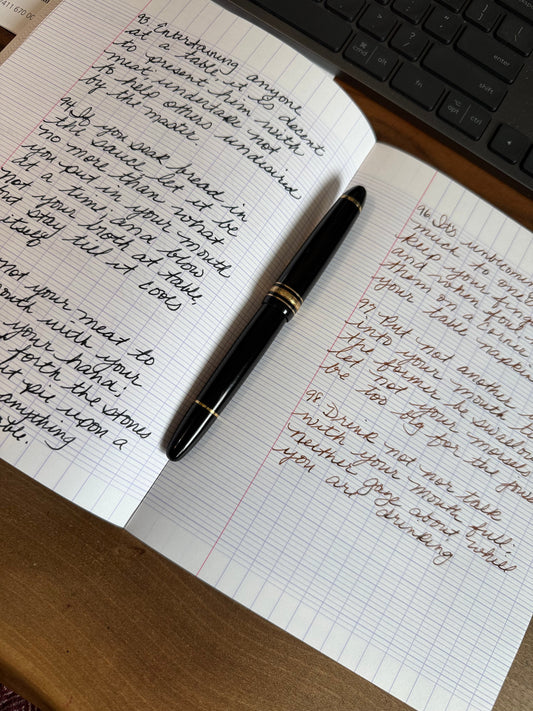 7411 670 0C
93. Entertaining anyone
at a table it is decent
to present him with
meat, undertake not
to help others undesired
by the master
94. If you soak bread in
the sauce let it be
no more than what
you put in your mouth
at a time, and blow
not your broth at table,
but stay till it cools
itself
not your meat to
mouth with your
your hand;
forth the stones
pie upon a
anything
96. Its unbecom
much to one's
keep your fing
and when foul
them on a corne
your table napki
97. Put not another b
into your mouth t
the former be swallow
let not your morsels
be too big for the jow
98. Drink not nor talk
with your mouth full;
neither gaze about while
you are drinking
fn
⌘ cmd
fn
⌥ opt
shift
ctrl